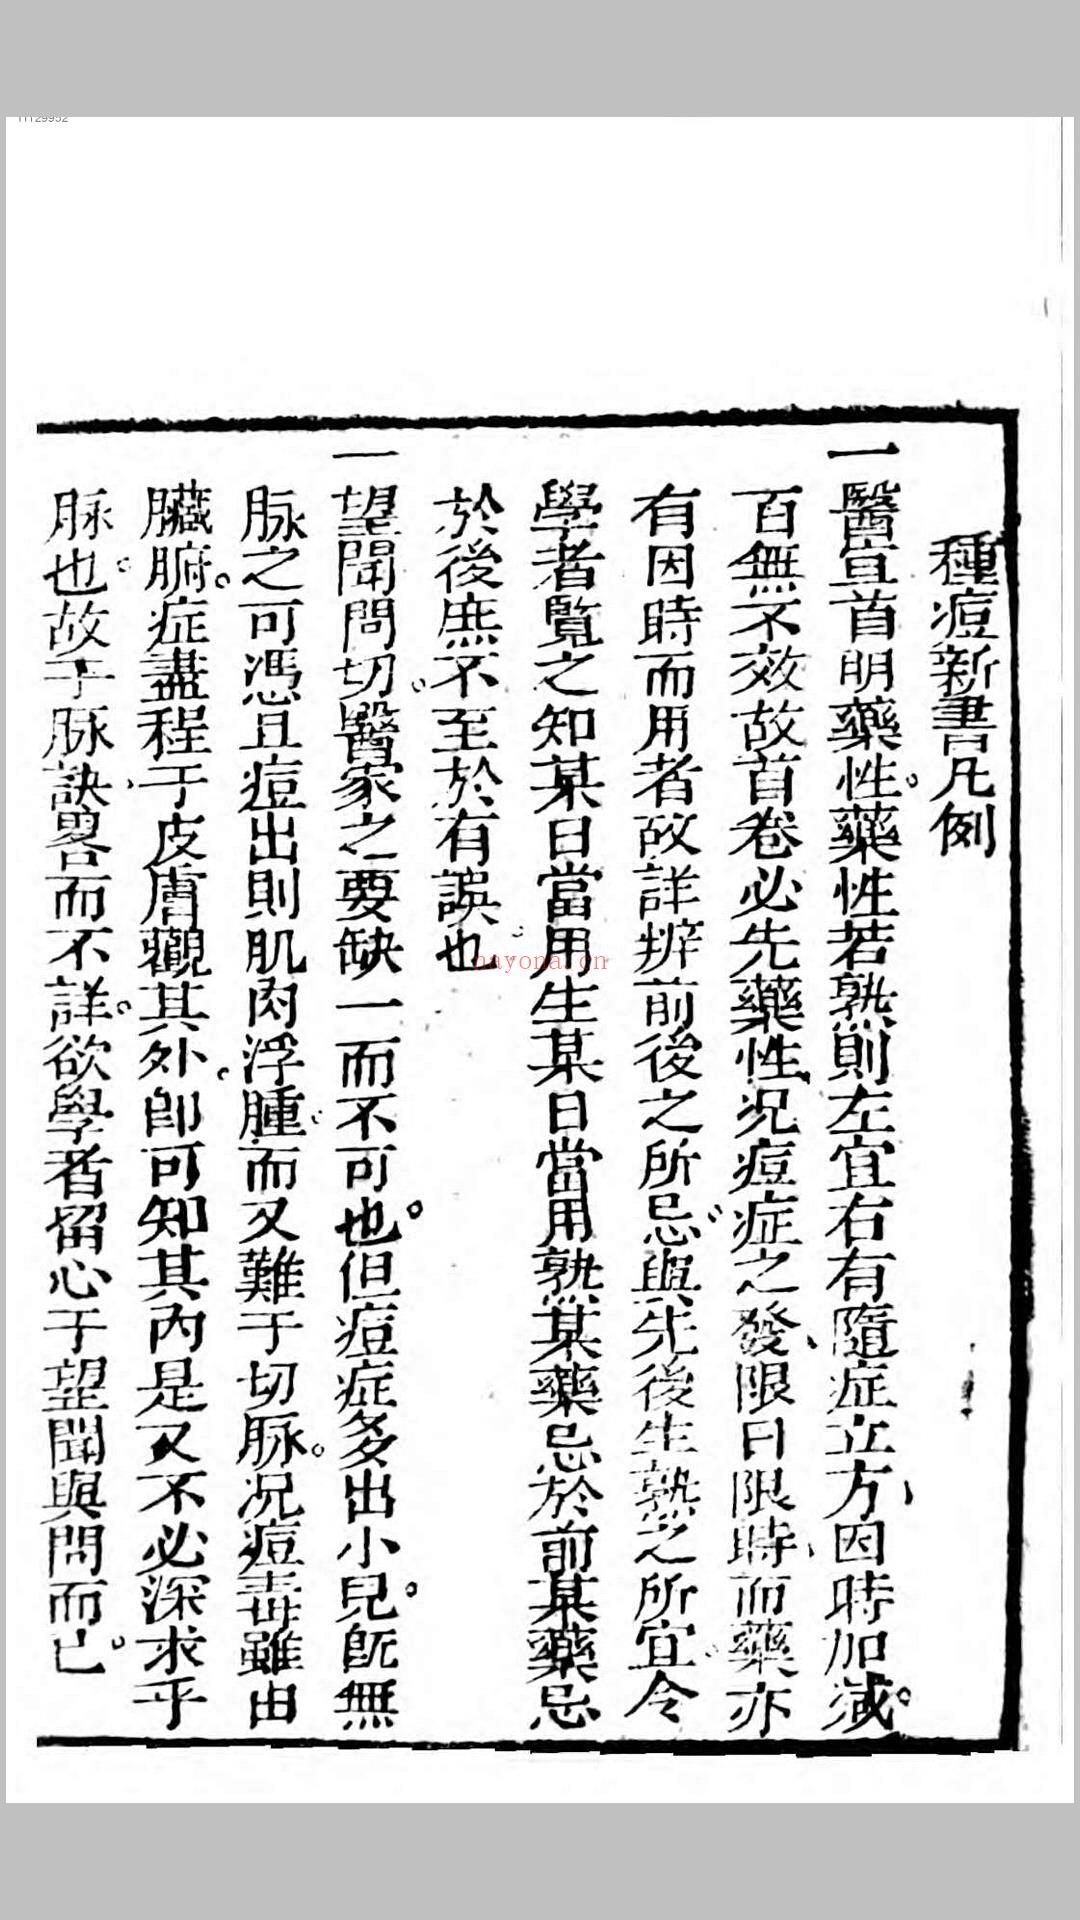 種痘新書凡例
一醫宜首明藥性。藥性若熟則左宜右有隨症立方、因時加減。
百無不效故首卷必先藥性、况痘症之發、限日限時、而藥亦
有因時而用者故詳辨前後之所忌與先後生熟之所宜令
學者覧之知某日當用生某日當用熟某藥忌於前某藥忌
於後庶不至於有誤也
一望聞問切。醫家之要缺一而不可也。但痘症多出小兒。旣無
脉之可憑且痘出則肌肉浮腫而又難于切脉。况痘毒雖由
臟腑。症盡程于皮膚觀其外。卽可知其內是又不必深求乎
脉也。故于脉訣、畧而不詳。欲學者留心于望聞與問而已。
nayona.cn